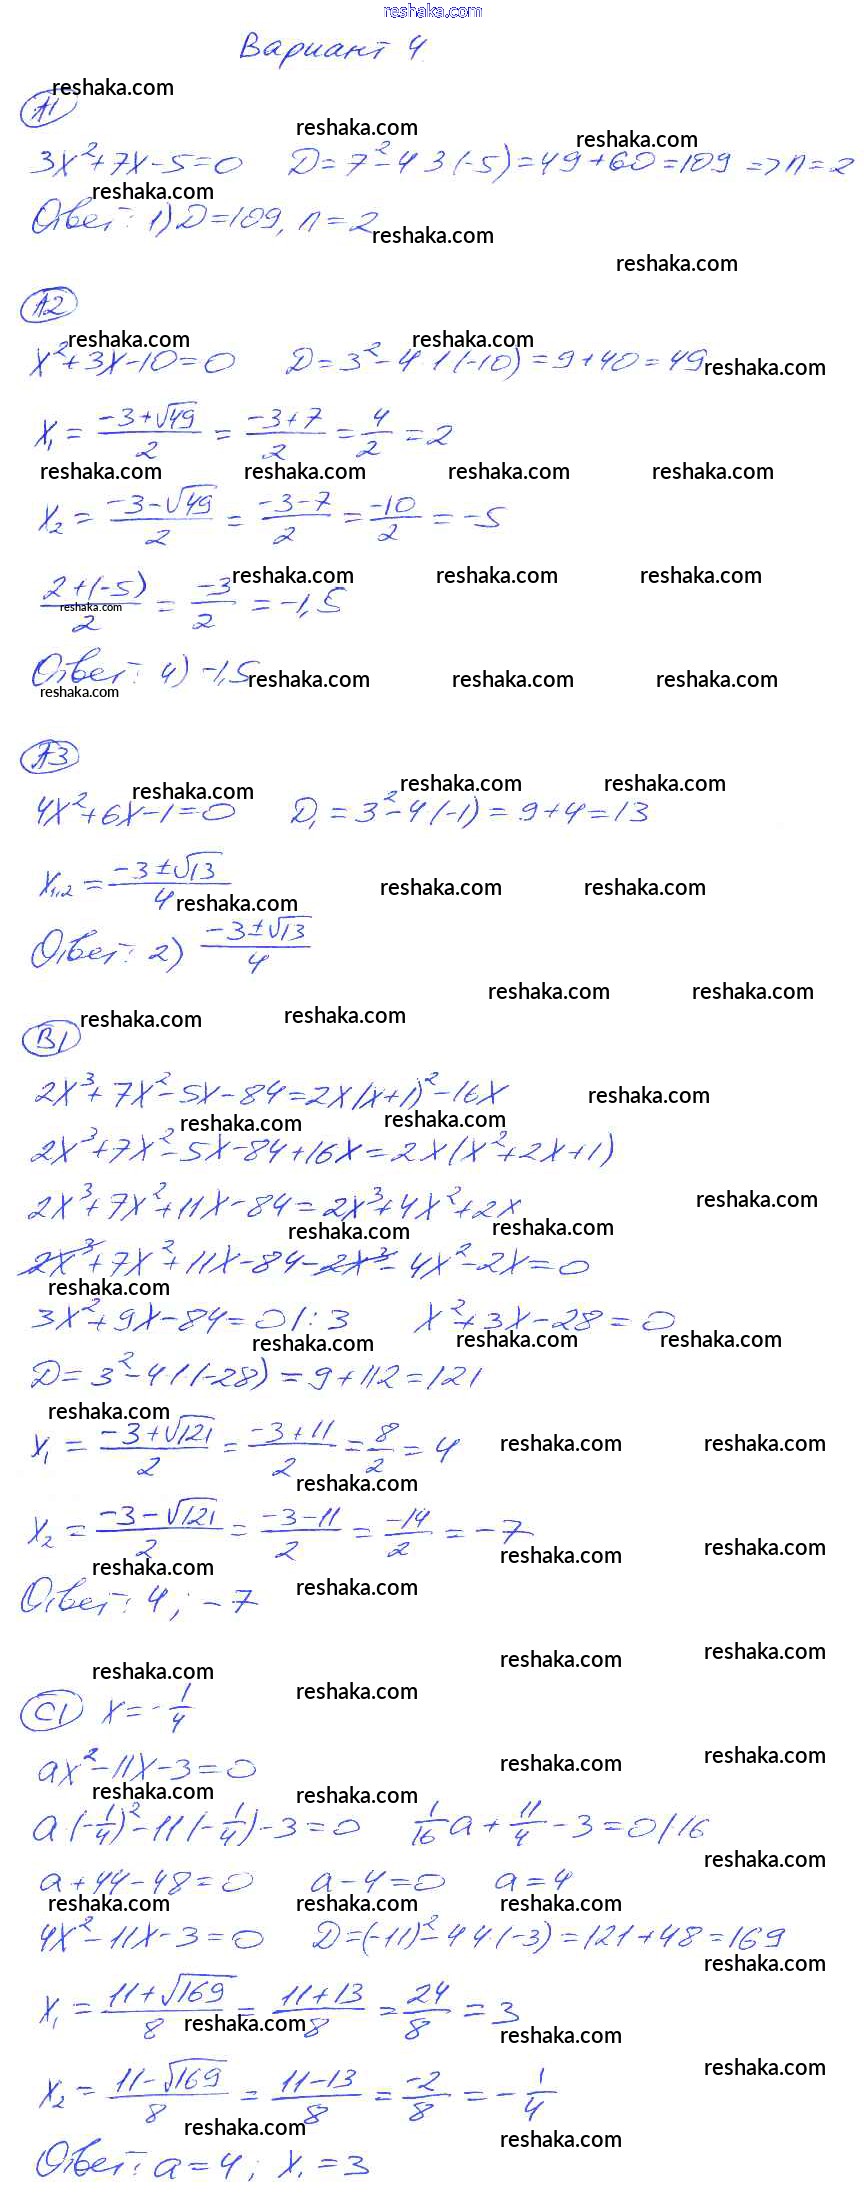 reshaka.com
Вариант 4
A1
3x²+7x-5=0 D=7²-4·3·(-5)=49+60=109 => n=2
Ответ: 1) D=109, n=2
A2
x²+3x-10=0 D=3²-4·1·(-10)=9+40=49
x₁ = (-3+√49)/2 = (-3+7)/2 = 4/2 = 2
x₂ = (-3-√49)/2 = (-3-7)/2 = -10/2 = -5
(2+(-5))/2 = -3/2 = -1,5
Ответ: 4) -1,5
A3
4x²+6x-1=0 D₁ = 3²-4·(-1) = 9+4=13
x₁,₂ = (-3±√13)/4
Ответ: 2) (-3±√13)/4
B1
2x³+7x²-5x-84=2x(x+1)²-16x
2x³+7x²-5x-84+16x=2x(x²+2x+1)
2x³+7x²+11x-84=2x³+4x²+2x
2x³+7x²+11x-84-2x³-4x²-2x=0
3x²+9x-84=0 /:3 x²+3x-28=0
D=3²-4·1·(-28)=9+112=121
x₁ = (-3+√121)/2 = (-3+11)/2 = 8/2 = 4
x₂ = (-3-√121)/2 = (-3-11)/2 = -14/2 = -7
Ответ: 4; -7
C1 x=-1/4
ax²-11x-3=0
a·(-1/4)²-11·(-1/4)-3=0 1/16a+11/4-3=0 /·16
a+44-48=0 a-4=0 a=4
4x²-11x-3=0 D=(-11)²-4·4·(-3)=121+48=169
x₁ = (11+√169)/8 = (11+13)/8 = 24/8 = 3
x₂ = (11-√169)/8 = (11-13)/8 = -2/8 = -1/4
Ответ: a=4; x₁=3